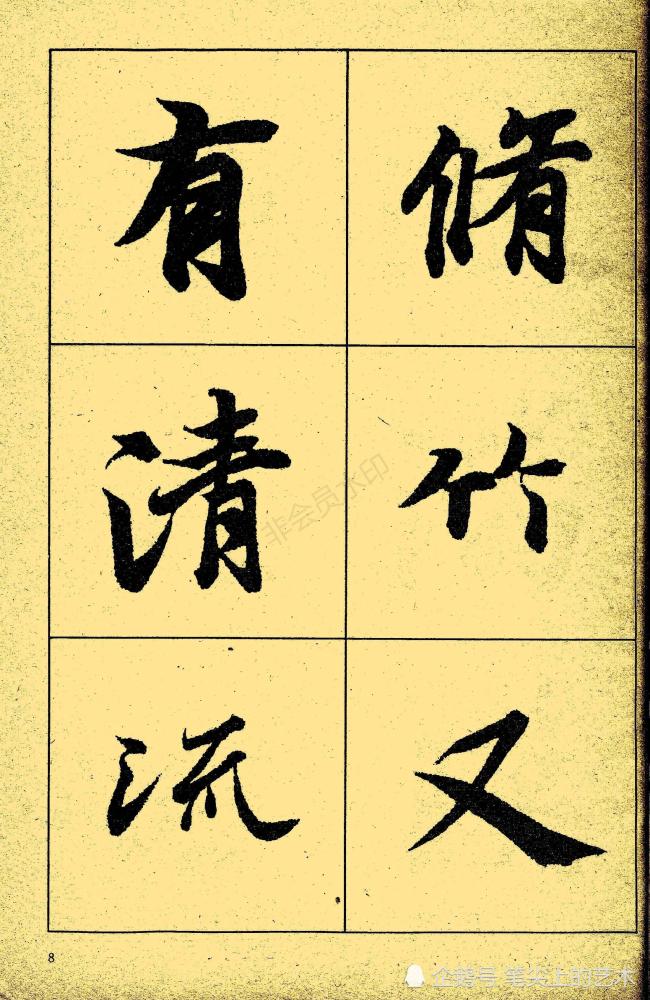 脩竹又
有清流
非会员水印
8
企鹅号 笔尖上的艺术